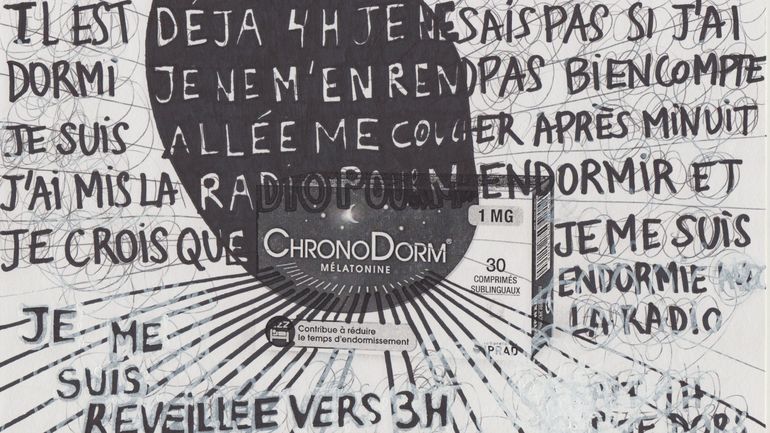 IL EST DÉJÀ 4H JE NE SAIS PAS SI J'AI
DORMI JE NE M'EN REND PAS BIEN COMPTE
JE SUIS ALLÉE ME COUCHER APRÈS MINUIT
J'AI MIS LA RADIO POUR M'ENDORMIR ET
JE CROIS QUE JE ME SUIS
ENDORMIE
LA RADIO
1 MG
CHRONODORM®
MÉLATONINE
30
COMPRIMÉS
SUBLINGUAUX
Contribue à réduire
le temps d'endormissement
PRAD
JE ME
SUIS
REVEILLÉE VERS 3H